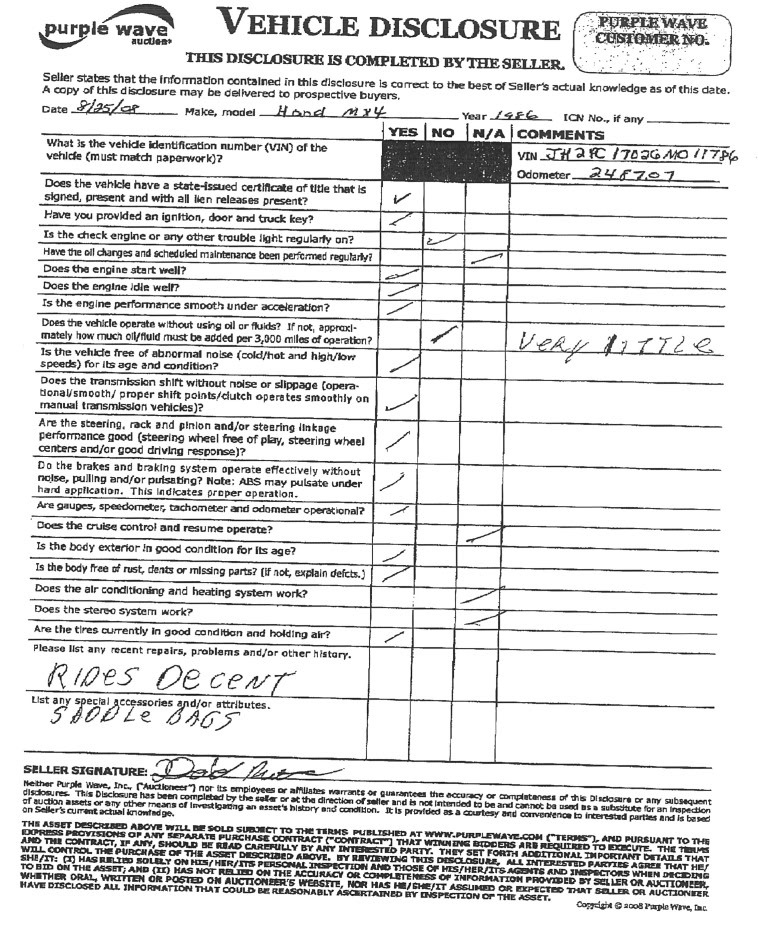 purple wave
auction®
VEHICLE DISCLOSURE
PURPLE WAVE
CUSTOMER NO.
THIS DISCLOSURE IS COMPLETED BY THE SELLER.
Seller states that the information contained in this disclosure is correct to the best of Seller's actual knowledge as of this date.
A copy of this disclosure may be delivered to prospective buyers.
Date 8/25/08 Make, model Hond MX4 Year 1986 ICN No., if any
YES NO N/A COMMENTS
What is the vehicle identification number (VIN) of the
vehicle (must match paperwork)?
VIN JH2PC1702GM011786
Odometer 248707
Does the vehicle have a state-issued certificate of title that is
signed, present and with all lien releases present?
Have you provided an ignition, door and truck key?
Is the check engine or any other trouble light regularly on?
Have the oil charges and scheduled maintenance been performed regularly?
Does the engine start well?
Does the engine idle well?
Is the engine performance smooth under acceleration?
Does the vehicle operate without using oil or fluids? If not, approxi-
mately how much oil/fluid must be added per 3,000 miles of operation?
VERY LITTLE
Is the vehicle free of abnormal noise (cold/hot and high/low
speeds) for its age and condition?
Does the transmission shift without noise or slippage (opera-
tional/smooth/ proper shift points/clutch operates smoothly on
manual transmission vehicles)?
Are the steering, rack and pinion and/or steering linkage
performance good (steering wheel free of play, steering wheel
centers and/or good driving response)?
Do the brakes and braking system operate effectively without
noise, pulling and/or pulsating? Note: ABS may pulsate under
hard application. This indicates proper operation.
Are gauges, speedometer, tachometer and odometer operational?
Does the cruise control and resume operate?
Is the body exterior in good condition for its age?
Is the body free of rust, dents or missing parts? (if not, explain defcts.)
Does the air conditioning and heating system work?
Does the stereo system work?
Are the tires currently in good condition and holding air?
Please list any recent repairs, problems and/or other history.
RIDES DECENT
List any special accessories and/or attributes.
SADDLE BAGS
SELLER SIGNATURE:
Neither Purple Wave, Inc. ("Auctioneer") nor its employees or affiliates warrants or guarantees the accuracy or completeness of this Disclosure or any subsequent
disclosures. This Disclosure has been completed by the seller or at the direction of seller and is not intended to be and cannot be used as a substitute for an inspection
of auction assets or any other means of investigating an asset's history and condition. It is provided as a courtesy and convenience to interested parties and is based
on Seller's current actual knowledge.
THE ASSET DESCRIBED ABOVE WILL BE SOLD SUBJECT TO THE TERMS PUBLISHED AT WWW.PURPLEWAVE.COM ("TERMS"), AND PURSUANT TO THE
EXPRESS PROVISIONS OF ANY SEPARATE PURCHASE CONTRACT ("CONTRACT") THAT WINNING BIDDERS ARE REQUIRED TO EXECUTE. THE TERMS
AND THE CONTRACT, IF ANY, SHOULD BE READ CAREFULLY BY ANY INTERESTED PARTY. THEY SET FORTH ADDITIONAL IMPORTANT DETAILS THAT
WILL CONTROL THE PURCHASE OF THE ASSET DESCRIBED ABOVE. BY REVIEWING THIS DISCLOSURE, ALL INTERESTED PARTIES AGREE THAT HE/
SHE/IT: (I) HAS RELIED SOLELY ON HIS/HER/ITS PERSONAL INSPECTION AND THOSE OF HIS/HER/ITS AGENTS AND INSPECTORS WHEN DECIDING
TO BID ON THE ASSET; AND (II) HAS NOT RELIED ON THE ACCURACY OR COMPLETENESS OF INFORMATION PROVIDED BY SELLER OR AUCTIONEER,
WHETHER ORAL, WRITTEN OR POSTED ON AUCTIONEER'S WEBSITE, NOR HAS HE/SHE/IT ASSUMED OR EXPECTED THAT SELLER OR AUCTIONEER
HAVE DISCLOSED ALL INFORMATION THAT COULD BE REASONABLY ASCERTAINED BY INSPECTION OF THE ASSET.
Copyright © 2008 Purple Wave, Inc.